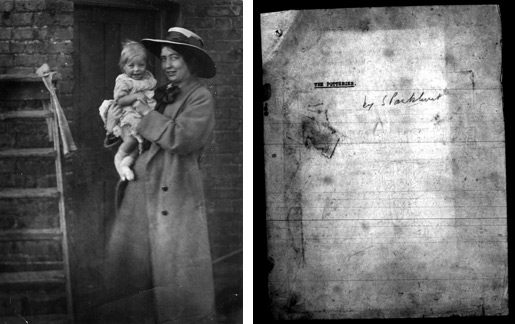 THE POTTERIES.
by S Pankhurst